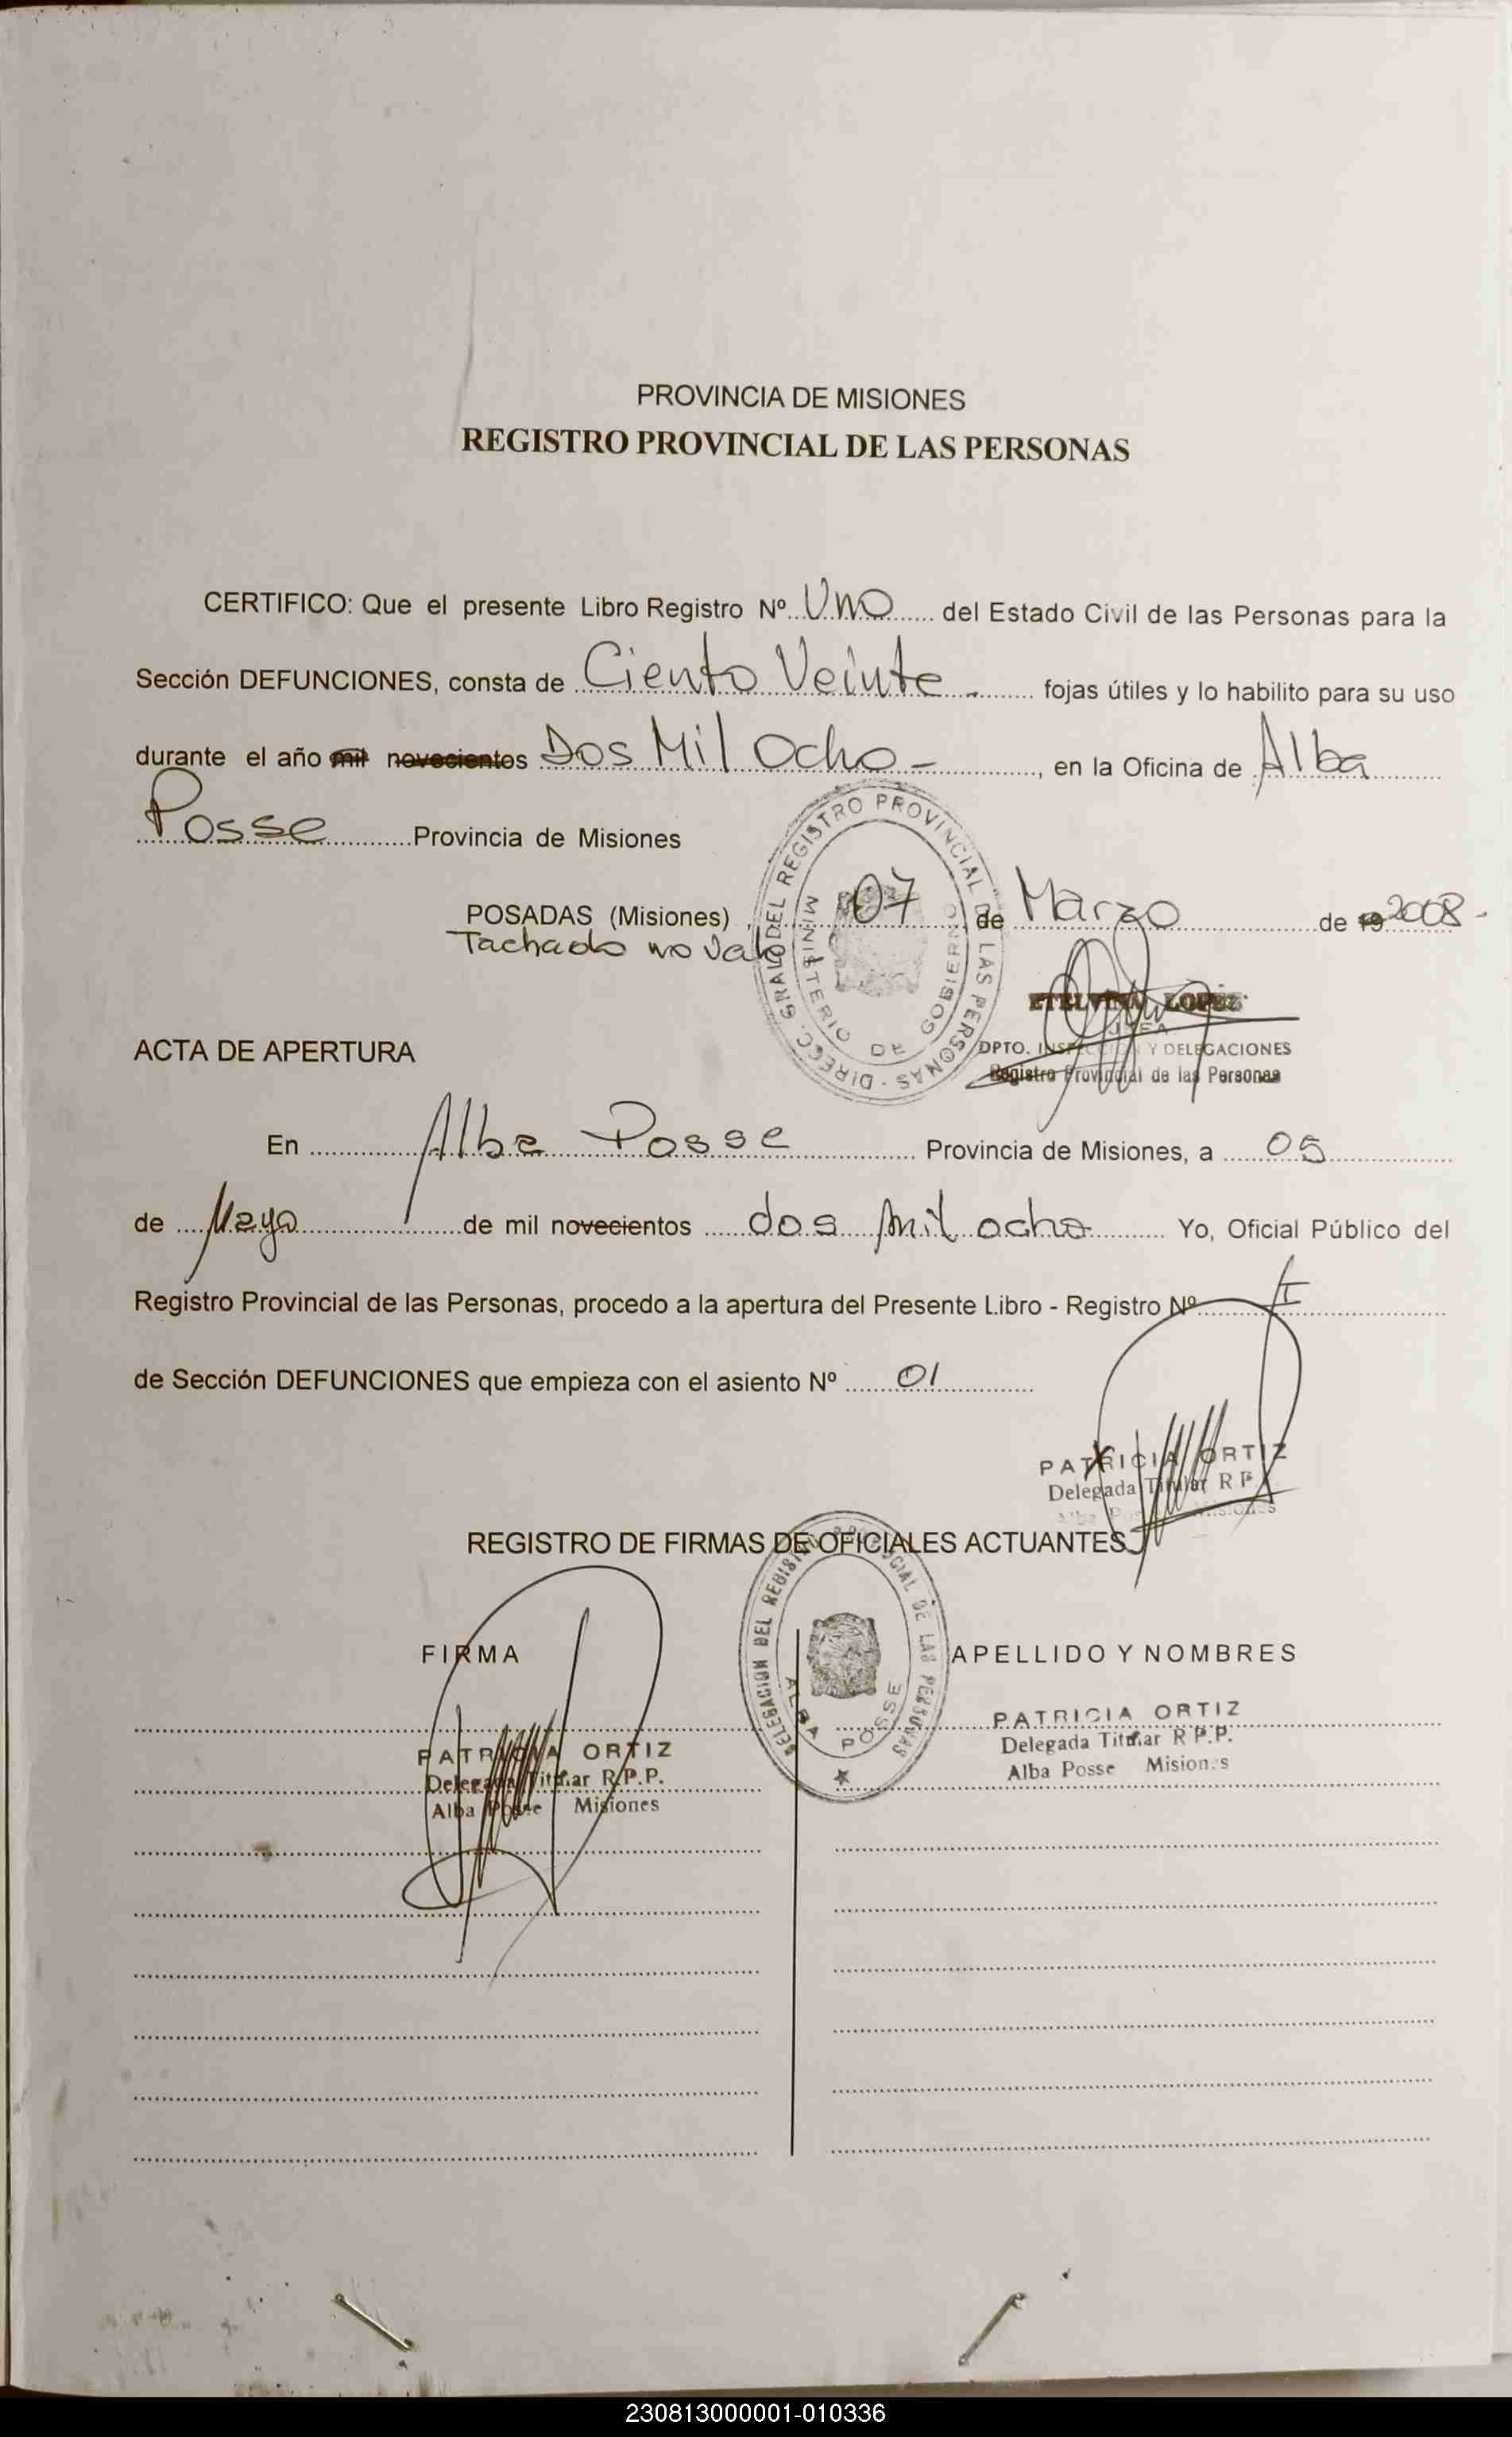 PROVINCIA DE MISIONES
REGISTRO PROVINCIAL DE LAS PERSONAS
CERTIFICO: Que el presente Libro Registro Nº Uno del Estado Civil de las Personas para la
Sección DEFUNCIONES, consta de Ciento Veinte.- fojas útiles y lo habilito para su uso
durante el año mil novecientos Dos Mil Ocho-, en la Oficina de Alba
Posse Provincia de Misiones
POSADAS (Misiones) 07 de Marzo de 19 2008-
Tachado no vale
DIRECC. GRAL. DEL REGISTRO PROVINCIAL DE LAS PERSONAS -
MINISTERIO DE GOBIERNO
LOPEZ
JEFA
DPTO. INSPECCION Y DELEGACIONES
Registro Provincial de las Personas
ACTA DE APERTURA
En Alba Posse Provincia de Misiones, a 05
de Mayo de mil novecientos dos mil ocho Yo, Oficial Público del
Registro Provincial de las Personas, procedo a la apertura del Presente Libro - Registro Nº I
de Sección DEFUNCIONES que empieza con el asiento Nº 01
PATRICIA ORTIZ
Delegada Titular R P
Alba Posse Misiones
REGISTRO DE FIRMAS DE OFICIALES ACTUANTES
DELEGACION DEL REGISTRO PROVINCIAL DE LAS PERSONAS
ALBA POSSE
FIRMA APELLIDO Y NOMBRES
PATRICIA ORTIZ
Delegada Titular R.P.P.
Alba Posse Misiones
PATRICIA ORTIZ
Delegada Titular R P.P.
Alba Posse Misiones
230813000001-010336